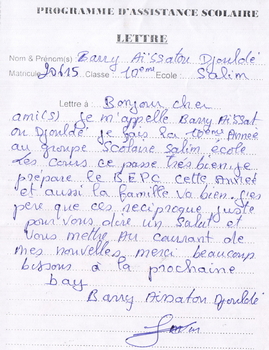 PROGRAMME D'ASSISTANCE SCOLAIRE
LETTRE
Nom & Prénom(s) Barry Aïssatou Djouldé
Matricule 20115 Classe: 10ème Ecole: Salim
Lettre à: Bonjour cher
ami(s) je m'appelle Barry Aïssat
ou Djouldé je fais la 10ème Année
au groupe Scolaire Salim école
les Cours ce passe très bien je
prepare le BEPC cette Année
et aussi la famille va bien. j'es
pere que ces reciproque juste
pour vous dire un Salut et
Vous mettre Au courant de
mes nouvelles merci beaucoup
bisous à la prochaine
bay
Barry Aissatou Djouldé